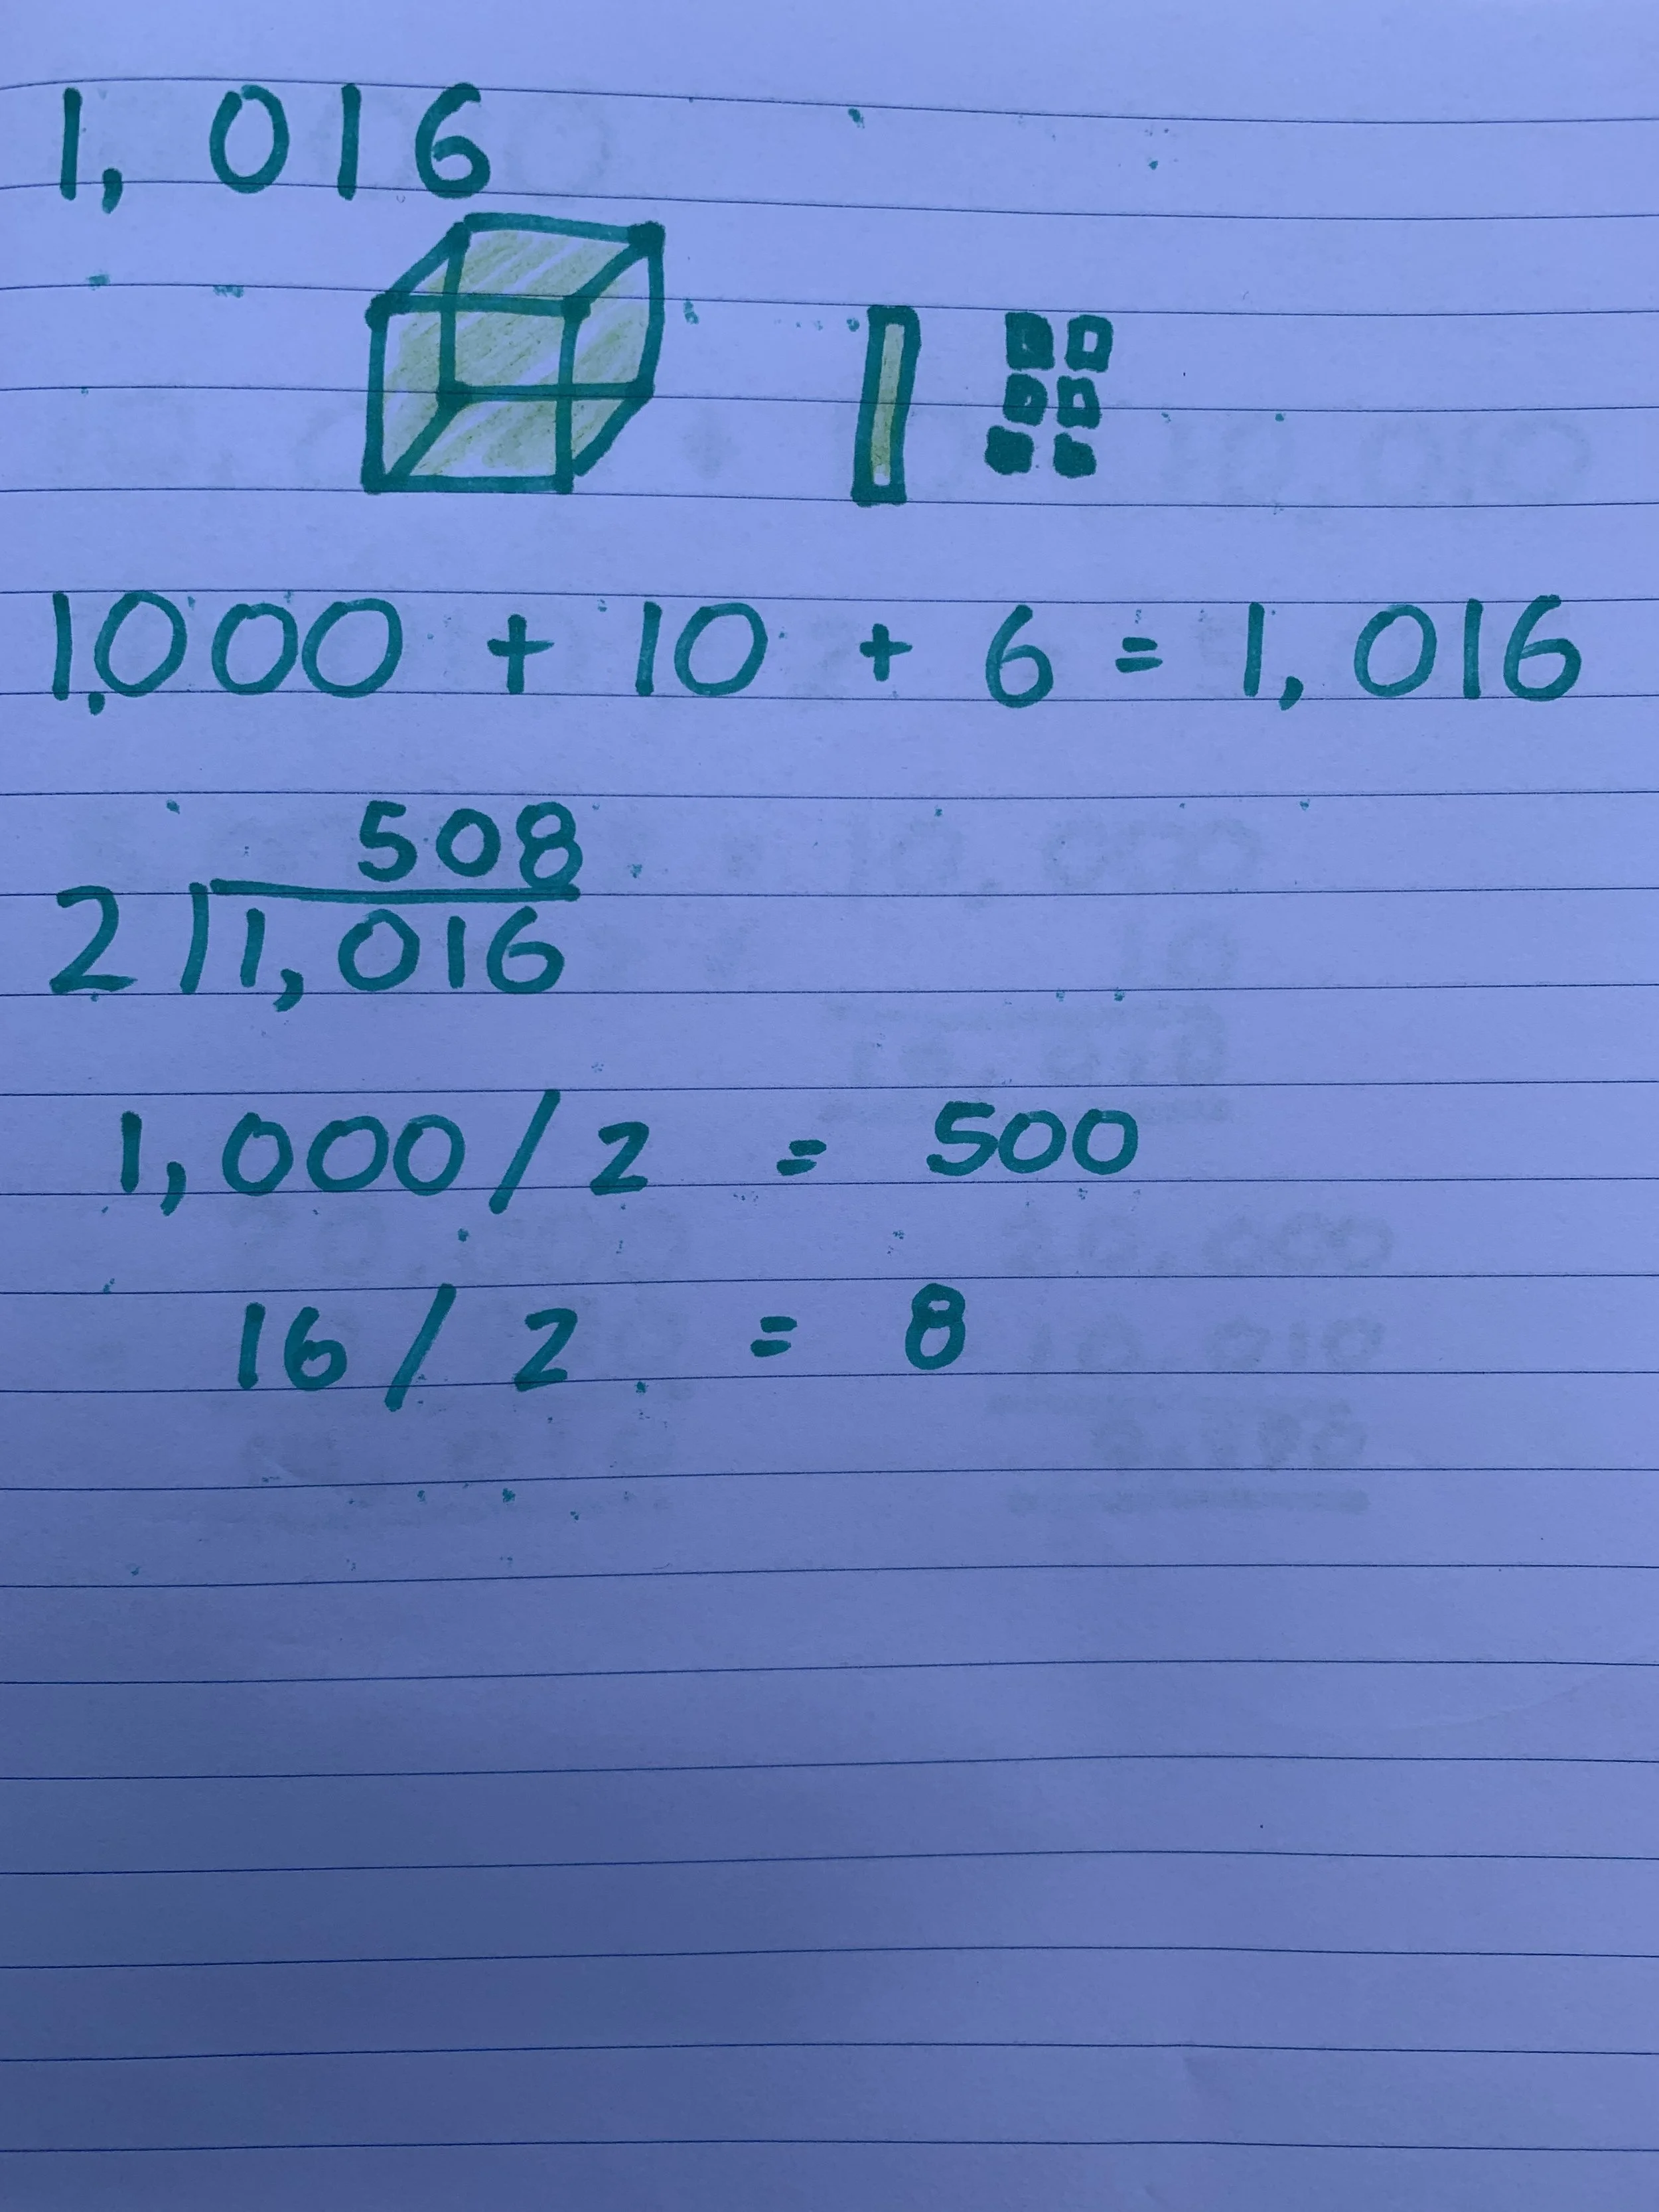 1,016
1,000 + 10 + 6 = 1,016
508
2 1,016
1,000 / 2 = 500
16 / 2 = 8